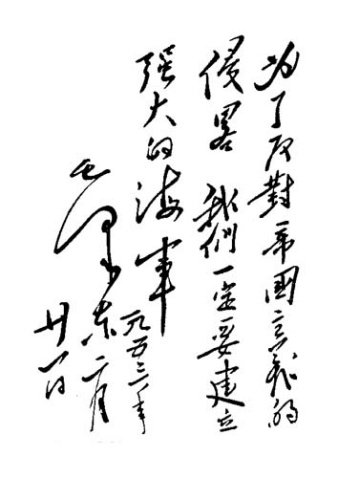 为了反對帝國主义的
侵畧 我們一定要建立
强大的海軍
一九五三年
毛泽东 二月
廿一日